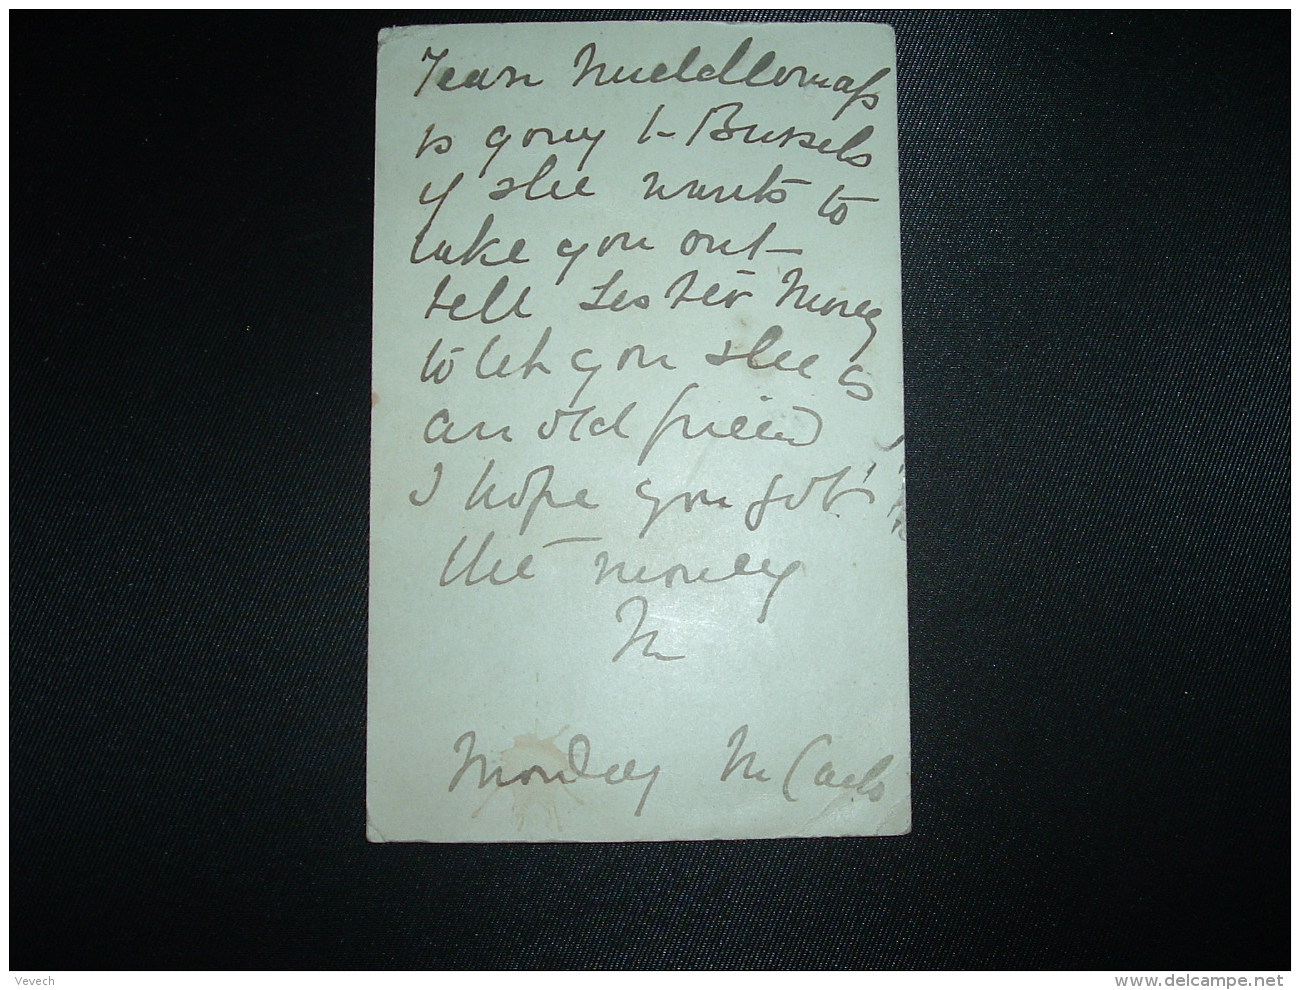 Jean Muddlomass
is going to Brussels
if she wants to
take you out
tell Sister Mercy
to let you she is
an old friend
I hope you got
the money
M
Monday M Carlo
Vevech
www.delcampe.net